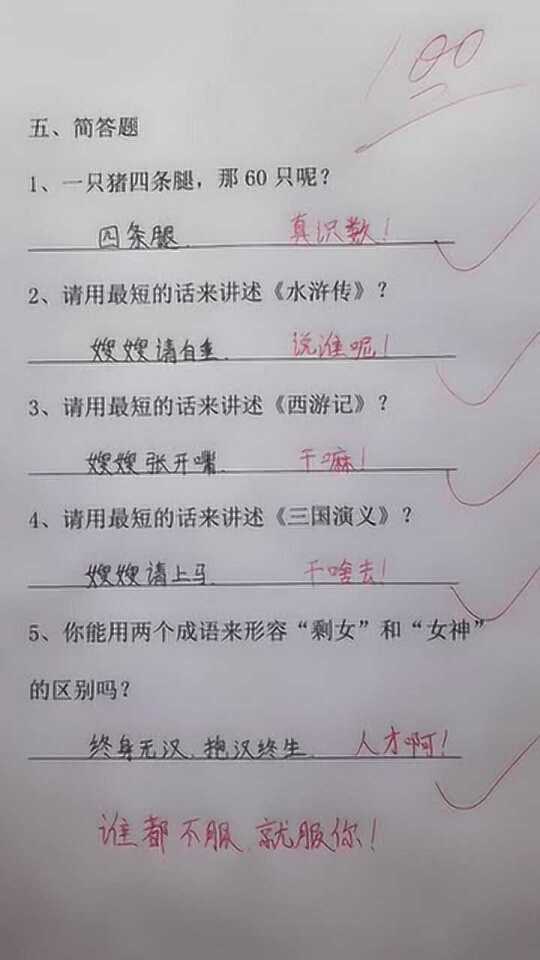 100
五、简答题
1、一只猪四条腿，那60只呢？
四条腿. 真识数！
2、请用最短的话来讲述《水浒传》？
嫂嫂请自重. 说谁呢！
3、请用最短的话来讲述《西游记》？
嫂嫂张开嘴. 干嘛！
4、请用最短的话来讲述《三国演义》？
嫂嫂请上马. 干啥去！
5、你能用两个成语来形容“剩女”和“女神”
的区别吗？
终身无汉、抱汉终生. 人才啊！
谁都不服，就服你！